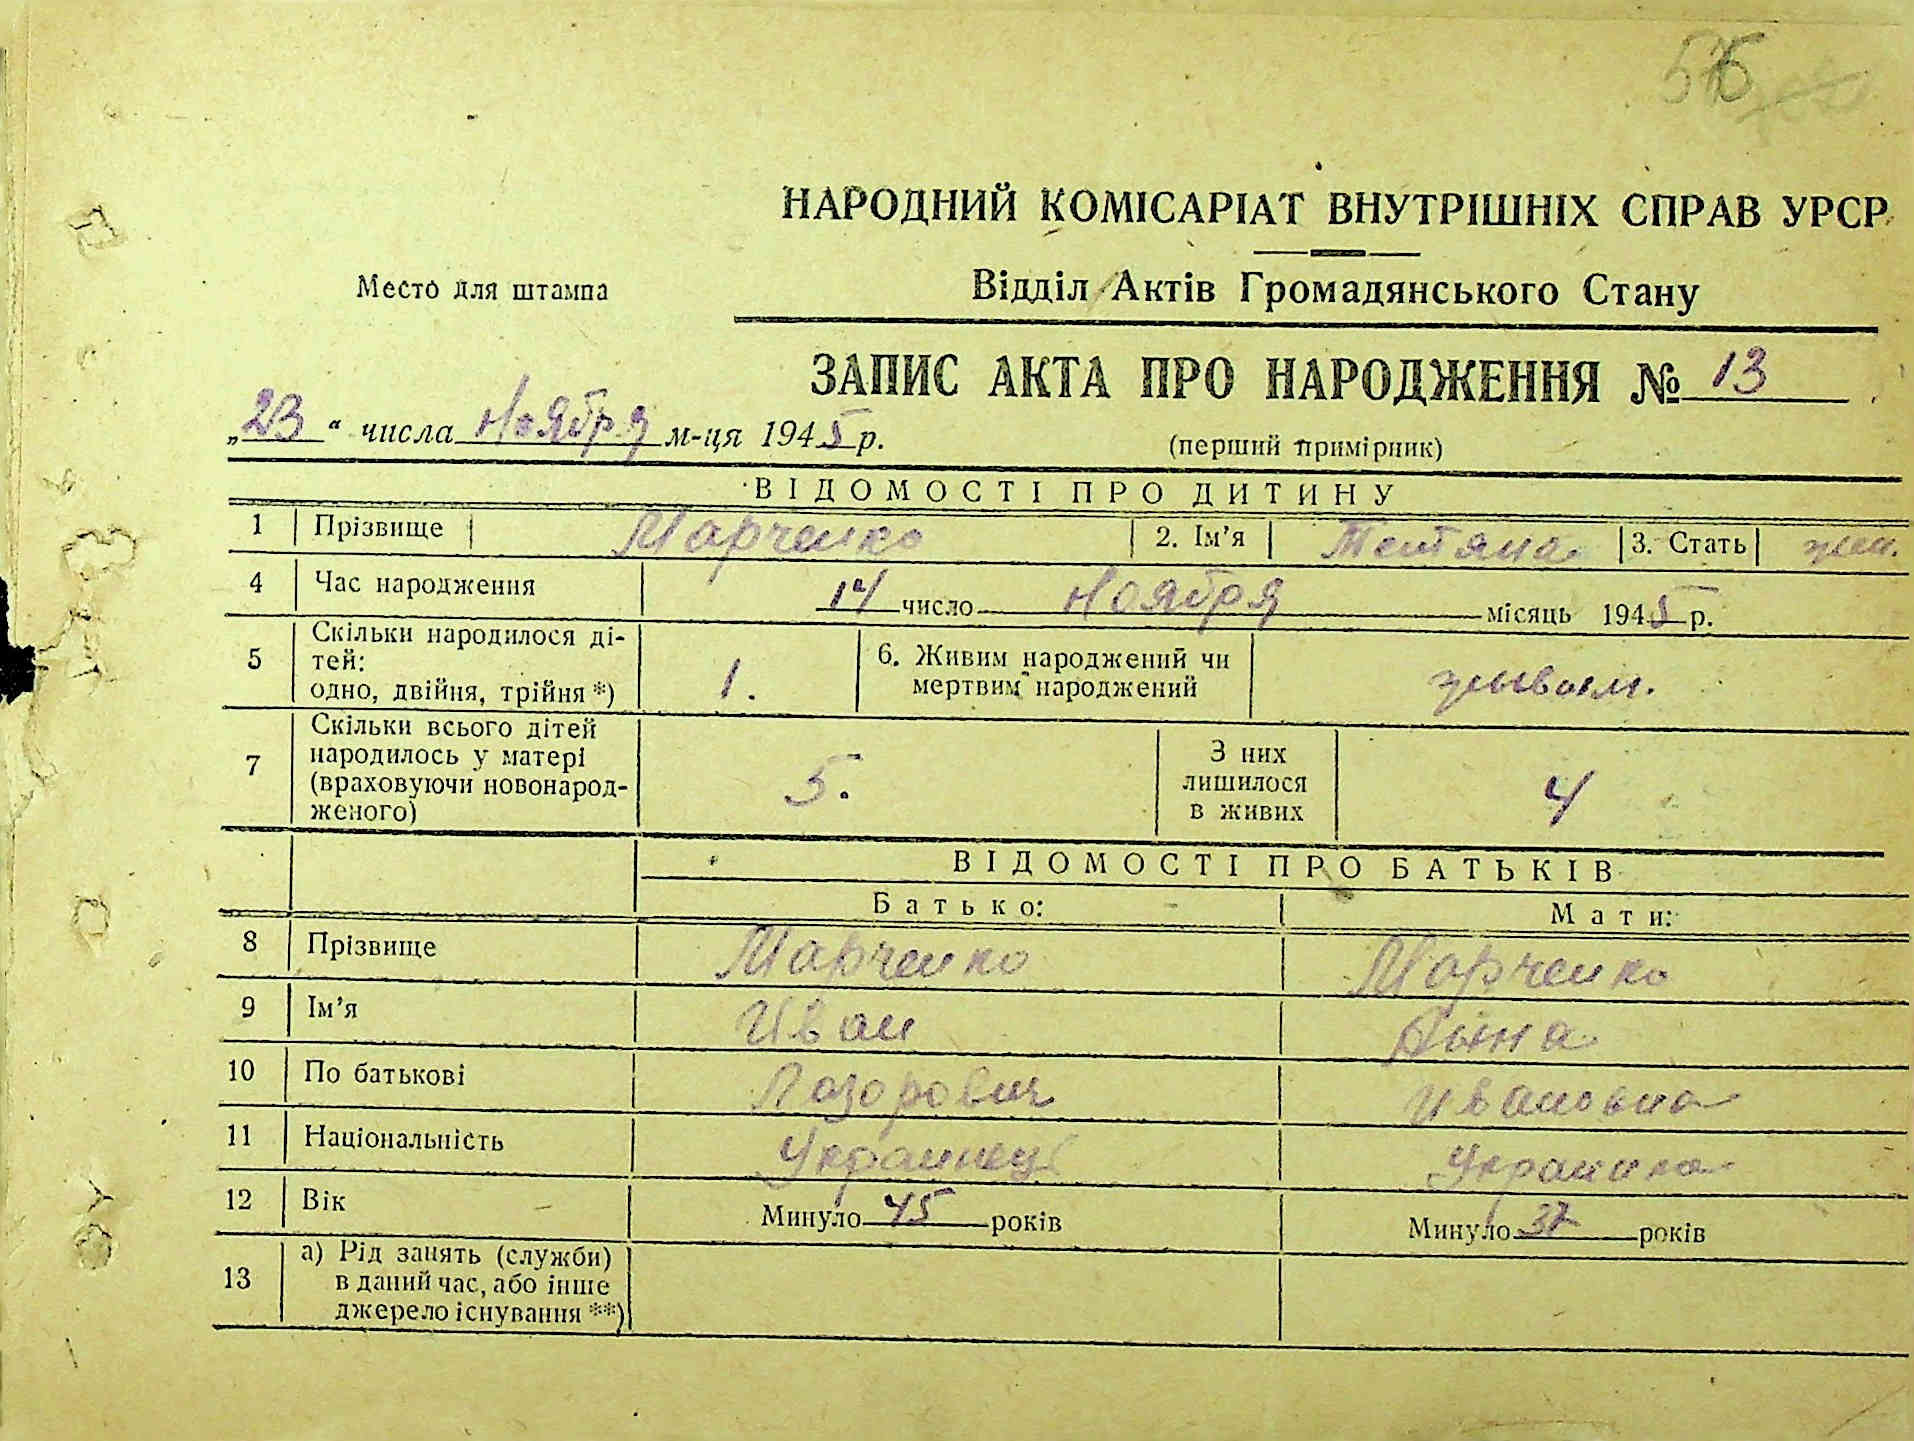 56
НАРОДНИЙ КОМІСАРІАТ ВНУТРІШНІХ СПРАВ УРСР
Место для штампа
Відділ Актів Громадянського Стану
ЗАПИС АКТА ПРО НАРОДЖЕННЯ № 13
„23“ числа Ноября м-ця 1945 р.
(перший примірник)
ВІДОМОСТІ ПРО ДИТИНУ
1 Прізвище Марченко 2. Ім'я Тетяна 3. Стать жен.
4 Час народження 14 число Ноября місяць 1945 р.
5 Скільки народилося ді-
тей:
одно, двійня, трійня *) 1. 6. Живим народжений чи
мертвим народжений живым.
7 Скільки всього дітей
народилось у матері
(враховуючи новонарод-
женого) 5. З них
лишилося
в живих 4
ВІДОМОСТІ ПРО БАТЬКІВ
Батько: Мати:
8 Прізвище Марченко Марченко
9 Ім'я Иван
10 По батькові Лазорович Ивановна
11 Національність Украинец Украинка
12 Вік Минуло 45 років Минуло 37 років
13 а) Рід занять (служби)
в даний час, або інше
джерело існування **)